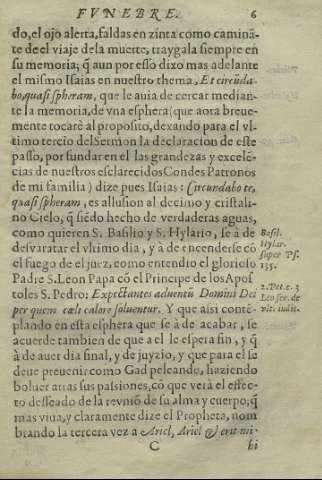 FVNEBRE. 6
do, el ojo alerta, faldas en zinta como caminã-
te de el viaje de la muerte, traygala siempre en
su memoria; q̃ aun por esso dixo mas adelante
el mismo Isaias en nuestro thema, Et circũda-
bo, quasi spheram, que le auia de cercar median-
te la memoria, de vna esphera (que aora breue-
mente tocarè al proposito, dexando para el vl-
timo tercio del Sermon la declaracion de este
passo, por fundar en el las grandezas y excelẽ-
cias de nuestros esclarecidos Condes Patronos
de mi familia) dize pues Isaias: Circundabo te,
quasi spheram, es allusion al decimo y cristali-
no Cielo, q̃ siẽdo hecho de verdaderas aguas,
como quieren S. Basilio y S. Hylario, se à de
Basil.
desvaratar el vltimo dia, y à de encenderse cõ
Hylar.
super Ps.
el fuego de el juez, como entendio el glorioso
135.
Padre S. Leon Papa cõ el Principe de los Apos
2. Pet. c. 3
toles S. Pedro: Expectantes aduentũ Domini Dei
Leo ser. de
per quem cæli calore soluentur. Y que aisi contẽ-
vit. iudit.
plando en esta esphera que se à de acabar, se
acuerde tambien de que a el le espera fin, y q̃
à de auer dia final, y de juyzio, y que para el se
deue preuenir como Gad peleando, haziendo
boluer atras sus passiones, cõ que verà el effec-
to desseado de la revniõ de su alma y cuerpo; q̃
mas viua, y claramente dize el Propheta, nom
brando la tercera vez a Ariel, Ariel & erit mi-
C hi